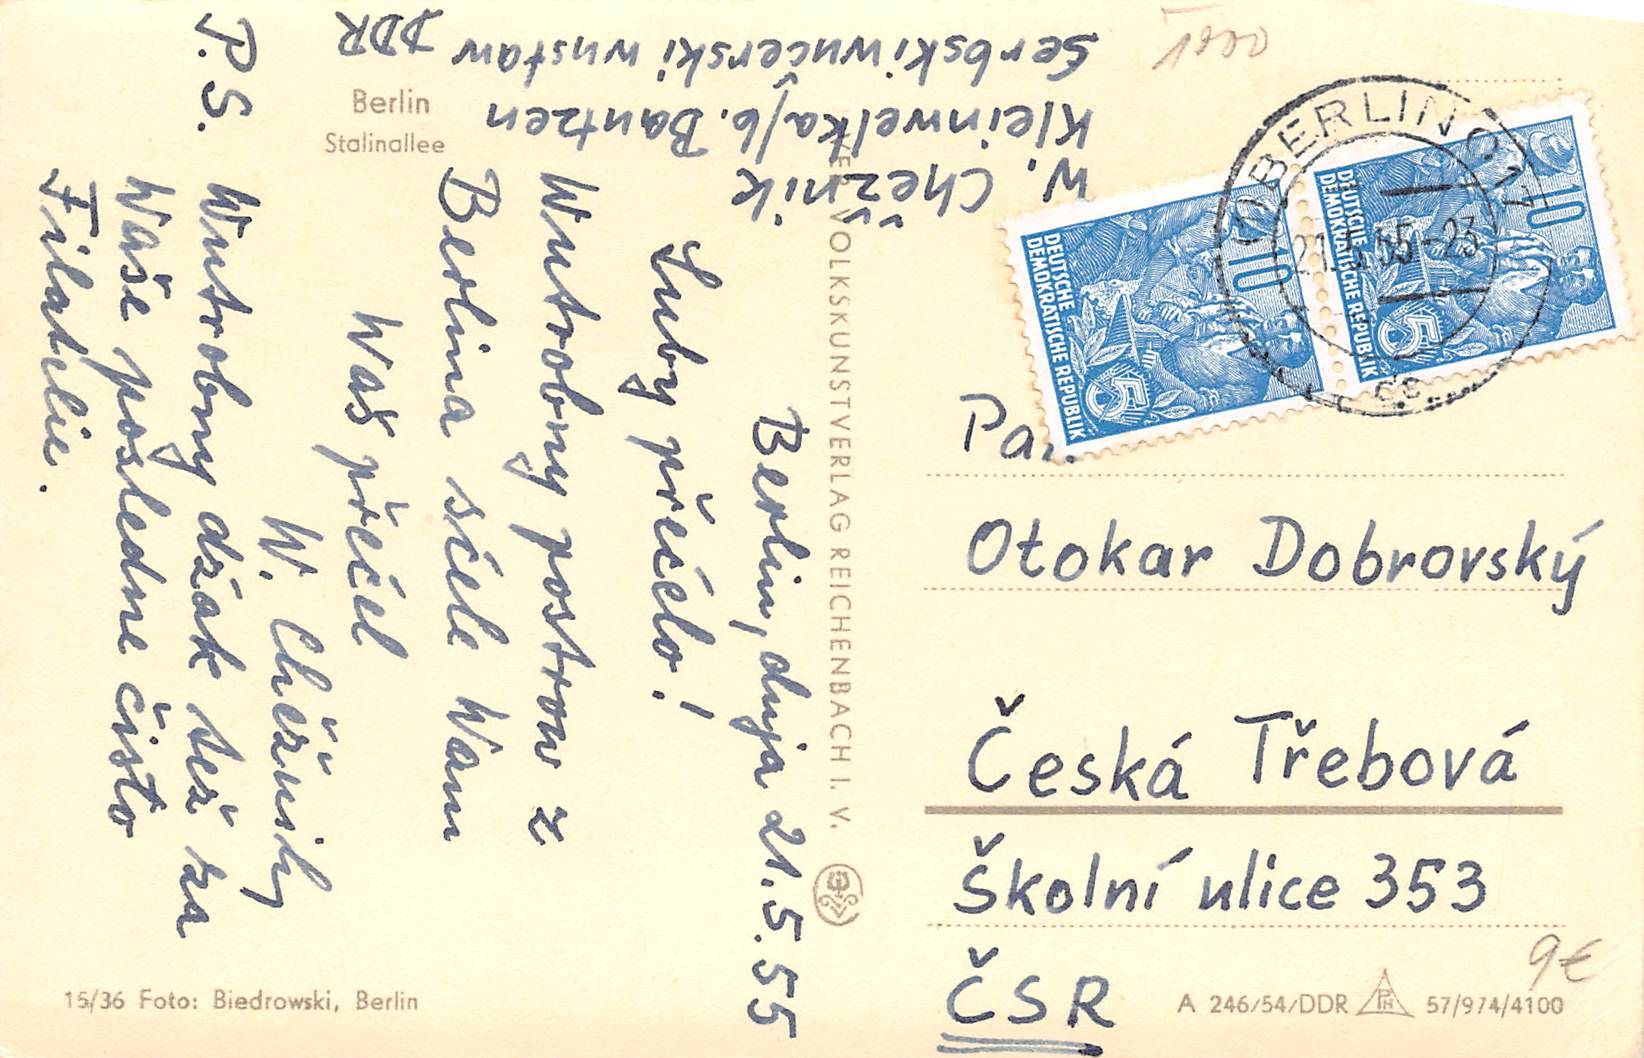 Berlin
Stalinallee
Berlin, dnja 21.5.55
Luby přećelo!
Wutrobny postrow z
Berlina sćele Wam
Waš přećel
W.
P.S. Wutrobny dźak tež za
Waše poslednje čisło
Filatelie.
W. Chěžnik
Kleinwelka/b. Bautzen
Serbski wučerski wustaw DDR
VOLKSKUNSTVERLAG REICHENBACH I. V.
DEUTSCHE
DEMOKRATISCHE REPUBLIK
10
5
DEUTSCHE
DEMOKRATISCHE REPUBLIK
10
5
BERLIN
55-23
Otokar Dobrovský
Česká Třebová
Školní ulice 353
ČSR
9€
15/36 Foto: Biedrowski, Berlin
A 246/54/DDR PH 57/974/4100